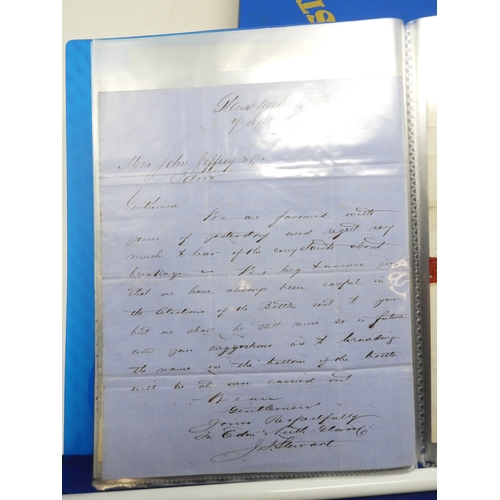 Glass Works Leith
7 Sept
Mess John Jeffrey & Co
Edinr
Gentlemen
We are favoured with
yours of yesterday and regret very
much to hear of the complaints about
breakage in We beg to assure you
that we have always been careful in
the selections of the Bottles sent to you
but we shall be still more so in future
and your suggestions as to branding
the name on the bottom of the bottle
will be at once carried out
We are
Gentlemen
Yours Respectfully
Edin & Leith Glass Co
J. Stewart
ST